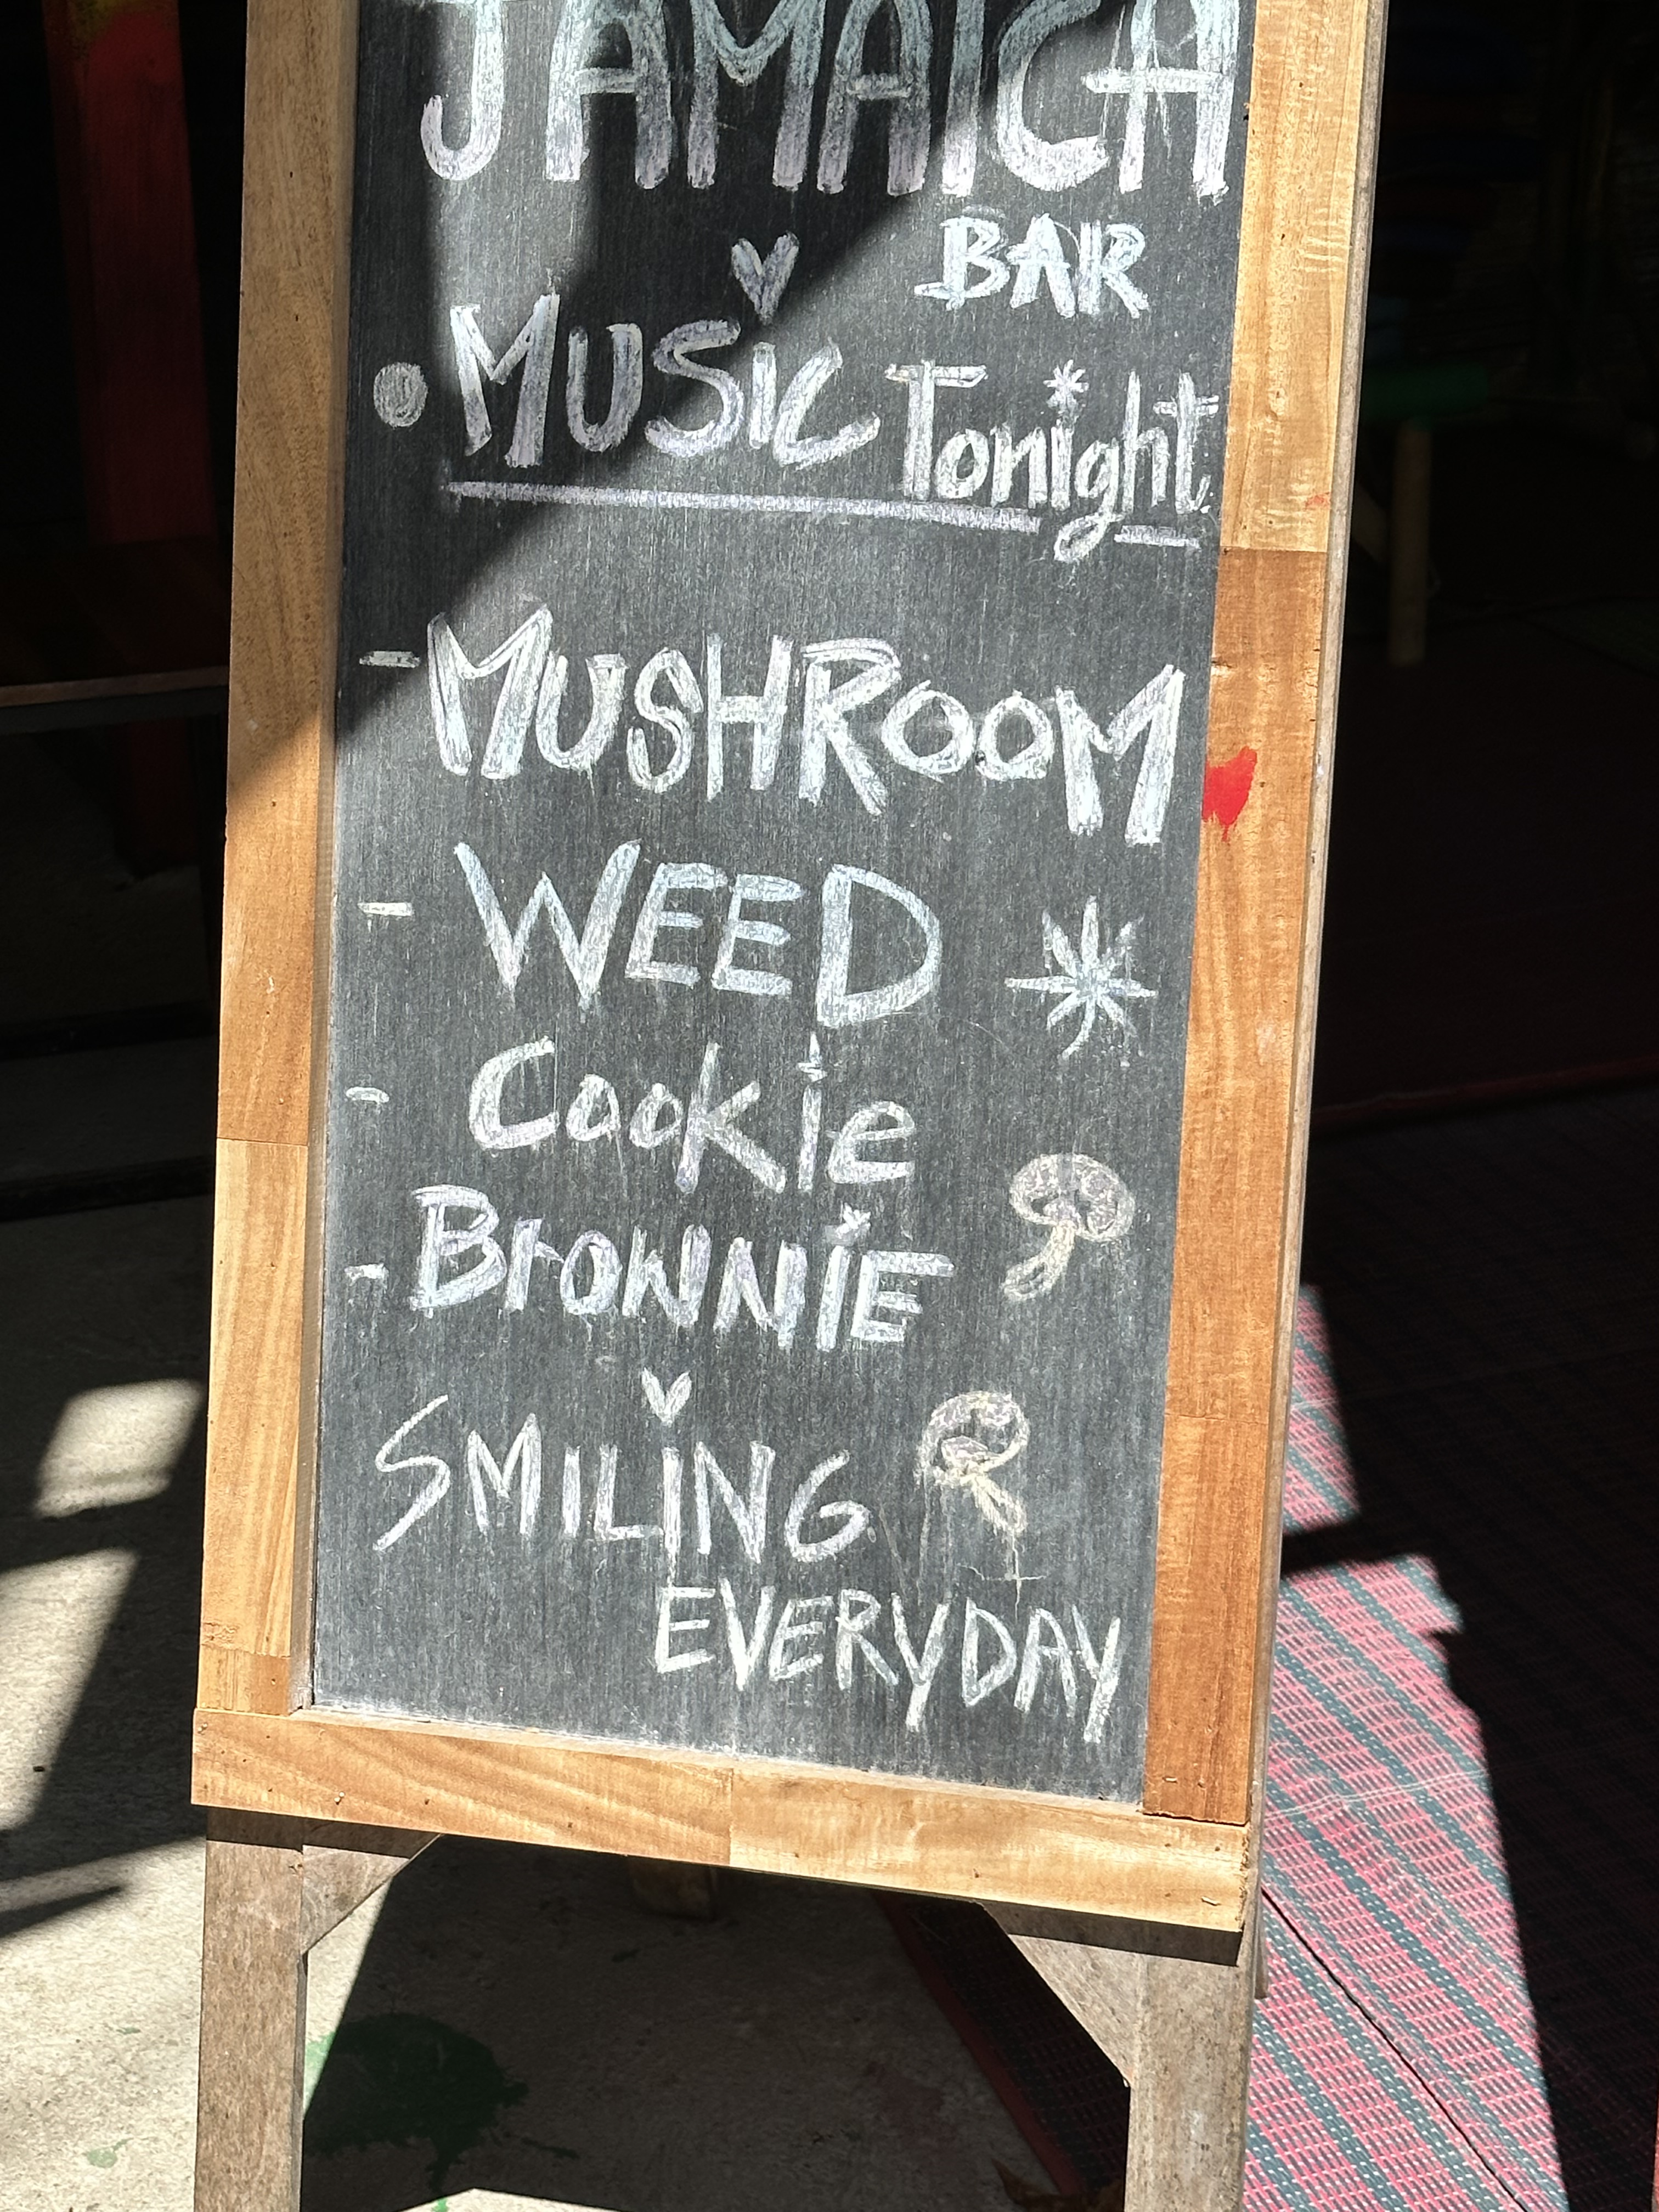 JAMAICA
BAR
• MUSiC Tonight
- MUSHROOM
- WEED
- Cookie
- BrOWNiE
SMILING
EVERYDAY